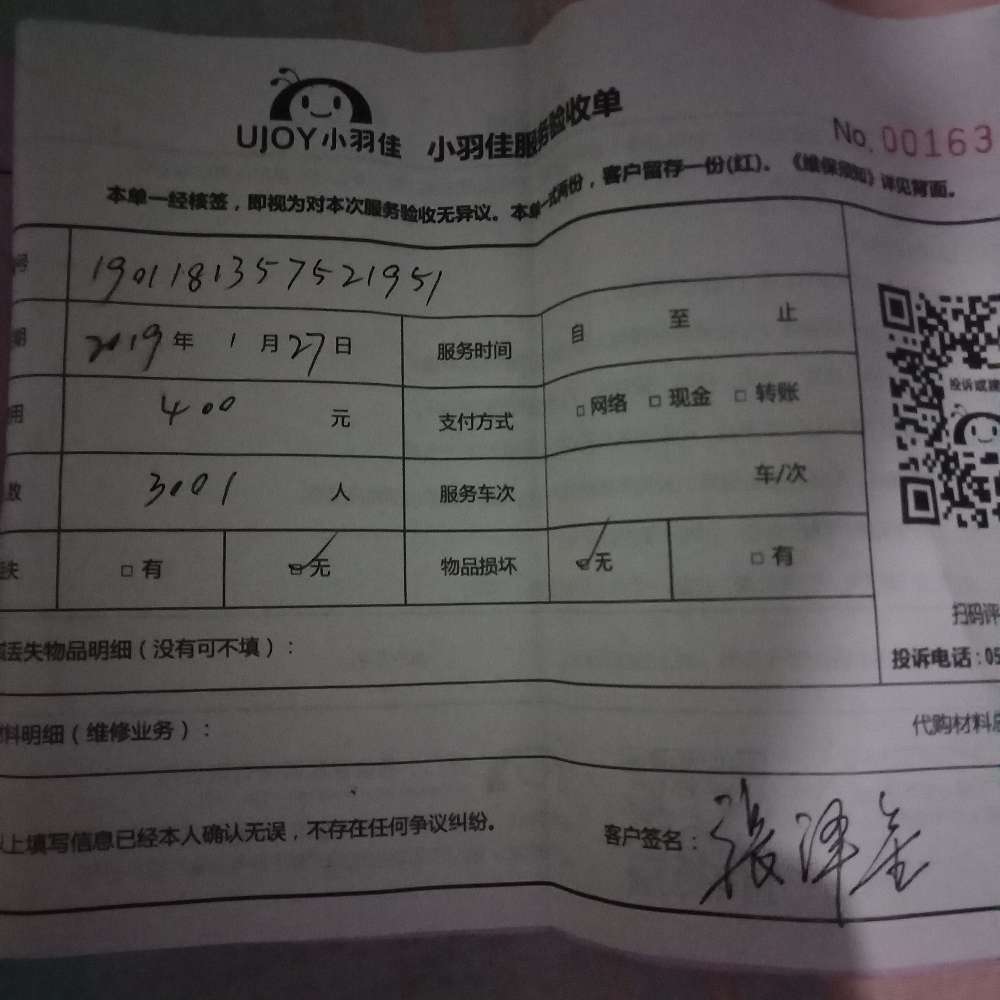 UJOY小羽佳 小羽佳服务验收单 No. 00163
本单一经核签，即视为对本次服务验收无异议。本单一式两份，客户留存一份(红)。《维保须知》详见背面。
号 1901181357521951
期 2019年 1月27日 服务时间 自 至 止
用 400 元 支付方式 □网络 □现金 □转账
数 3001 人 服务车次 车/次
失 □有 ☑无 物品损坏 ☑无 □有
投诉或建
扫码评
丢失物品明细（没有可不填）： 投诉电话：05
料明细（维修业务）： 代购材料总
以上填写信息已经本人确认无误，不存在任何争议纠纷。 客户签名：张泽金